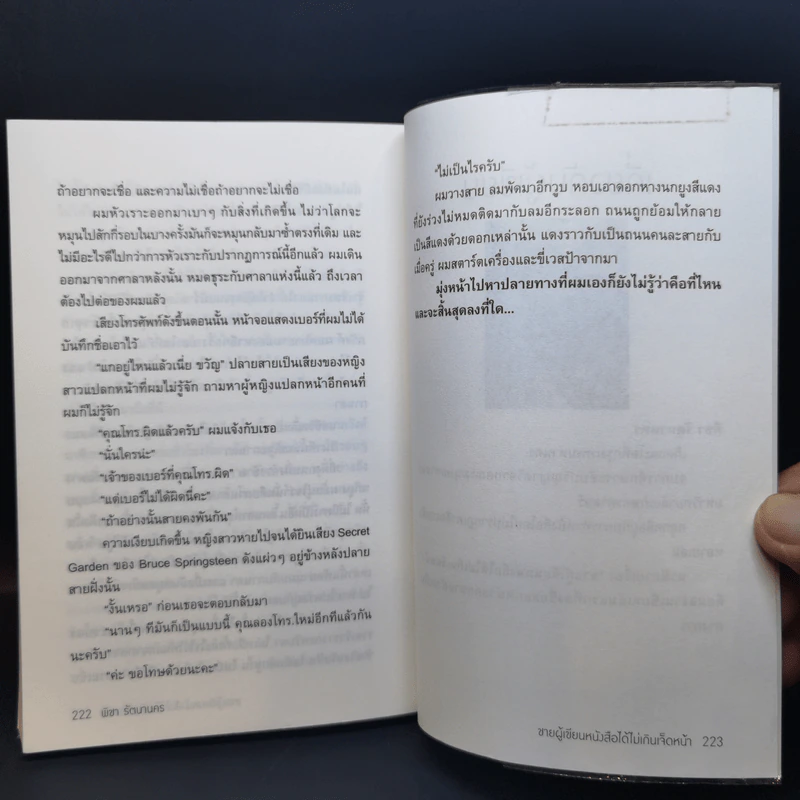 ถ้าอยากจะเชื่อ และความไม่เชื่อถ้าอยากจะไม่เชื่อ
ผมหัวเราะออกมาเบาๆ กับสิ่งที่เกิดขึ้น ไม่ว่าโลกจะ
หมุนไปสักกี่รอบในบางครั้งมันก็จะหมุนกลับมาซ้ำตรงที่เดิม และ
ไม่มีอะไรดีไปกว่าการหัวเราะกับปรากฏการณ์นี้อีกแล้ว ผมเดิน
ออกมาจากศาลาหลังนั้น หมดธุระกับศาลาแห่งนี้แล้ว ถึงเวลา
ต้องไปต่อของผมแล้ว
เสียงโทรศัพท์ดังขึ้นตอนนั้น หน้าจอแสดงเบอร์ที่ผมไม่ได้
บันทึกชื่อเอาไว้
“แกอยู่ไหนแล้วเนี่ย ขวัญ” ปลายสายเป็นเสียงของหญิง
สาวแปลกหน้าที่ผมไม่รู้จัก ถามหาผู้หญิงแปลกหน้าอีกคนที่
ผมก็ไม่รู้จัก
“คุณโทร.ผิดแล้วครับ” ผมแจ้งกับเธอ
“นั่นใครน่ะ”
“เจ้าของเบอร์ที่คุณโทร.ผิด”
“แต่เบอร์ไม่ได้ผิดนี่คะ”
“ถ้าอย่างนั้นสายคงพันกัน”
ความเงียบเกิดขึ้น หญิงสาวหายไปจนได้ยินเสียง Secret
Garden ของ Bruce Springsteen ดังแผ่วๆ อยู่ข้างหลังปลาย
สายฝั่งนั้น
“งั้นเหรอ” ก่อนเธอจะตอบกลับมา
“นานๆ ทีมันก็เป็นแบบนี้ คุณลองโทร.ใหม่อีกทีแล้วกัน
นะครับ”
“ค่ะ ขอโทษด้วยนะคะ”
222 พิชา รัตนานคร
“ไม่เป็นไรครับ”
ผมวางสาย ลมพัดมาอีกวูบ หอบเอาดอกหางนกยูงสีแดง
ที่ยังร่วงไม่หมดติดมากับลมอีกระลอก ถนนถูกย้อมให้กลาย
เป็นสีแดงด้วยดอกเหล่านั้น แดงราวกับเป็นถนนคนละสายกับ
เมื่อครู่ ผมสตาร์ตเครื่องและขี่เวสป้าจากมา
มุ่งหน้าไปหาปลายทางที่ผมเองก็ยังไม่รู้ว่าคือที่ไหน
และจะสิ้นสุดลงที่ใด...
ชายผู้เขียนหนังสือได้ไม่เกินเจ็ดหน้า 223